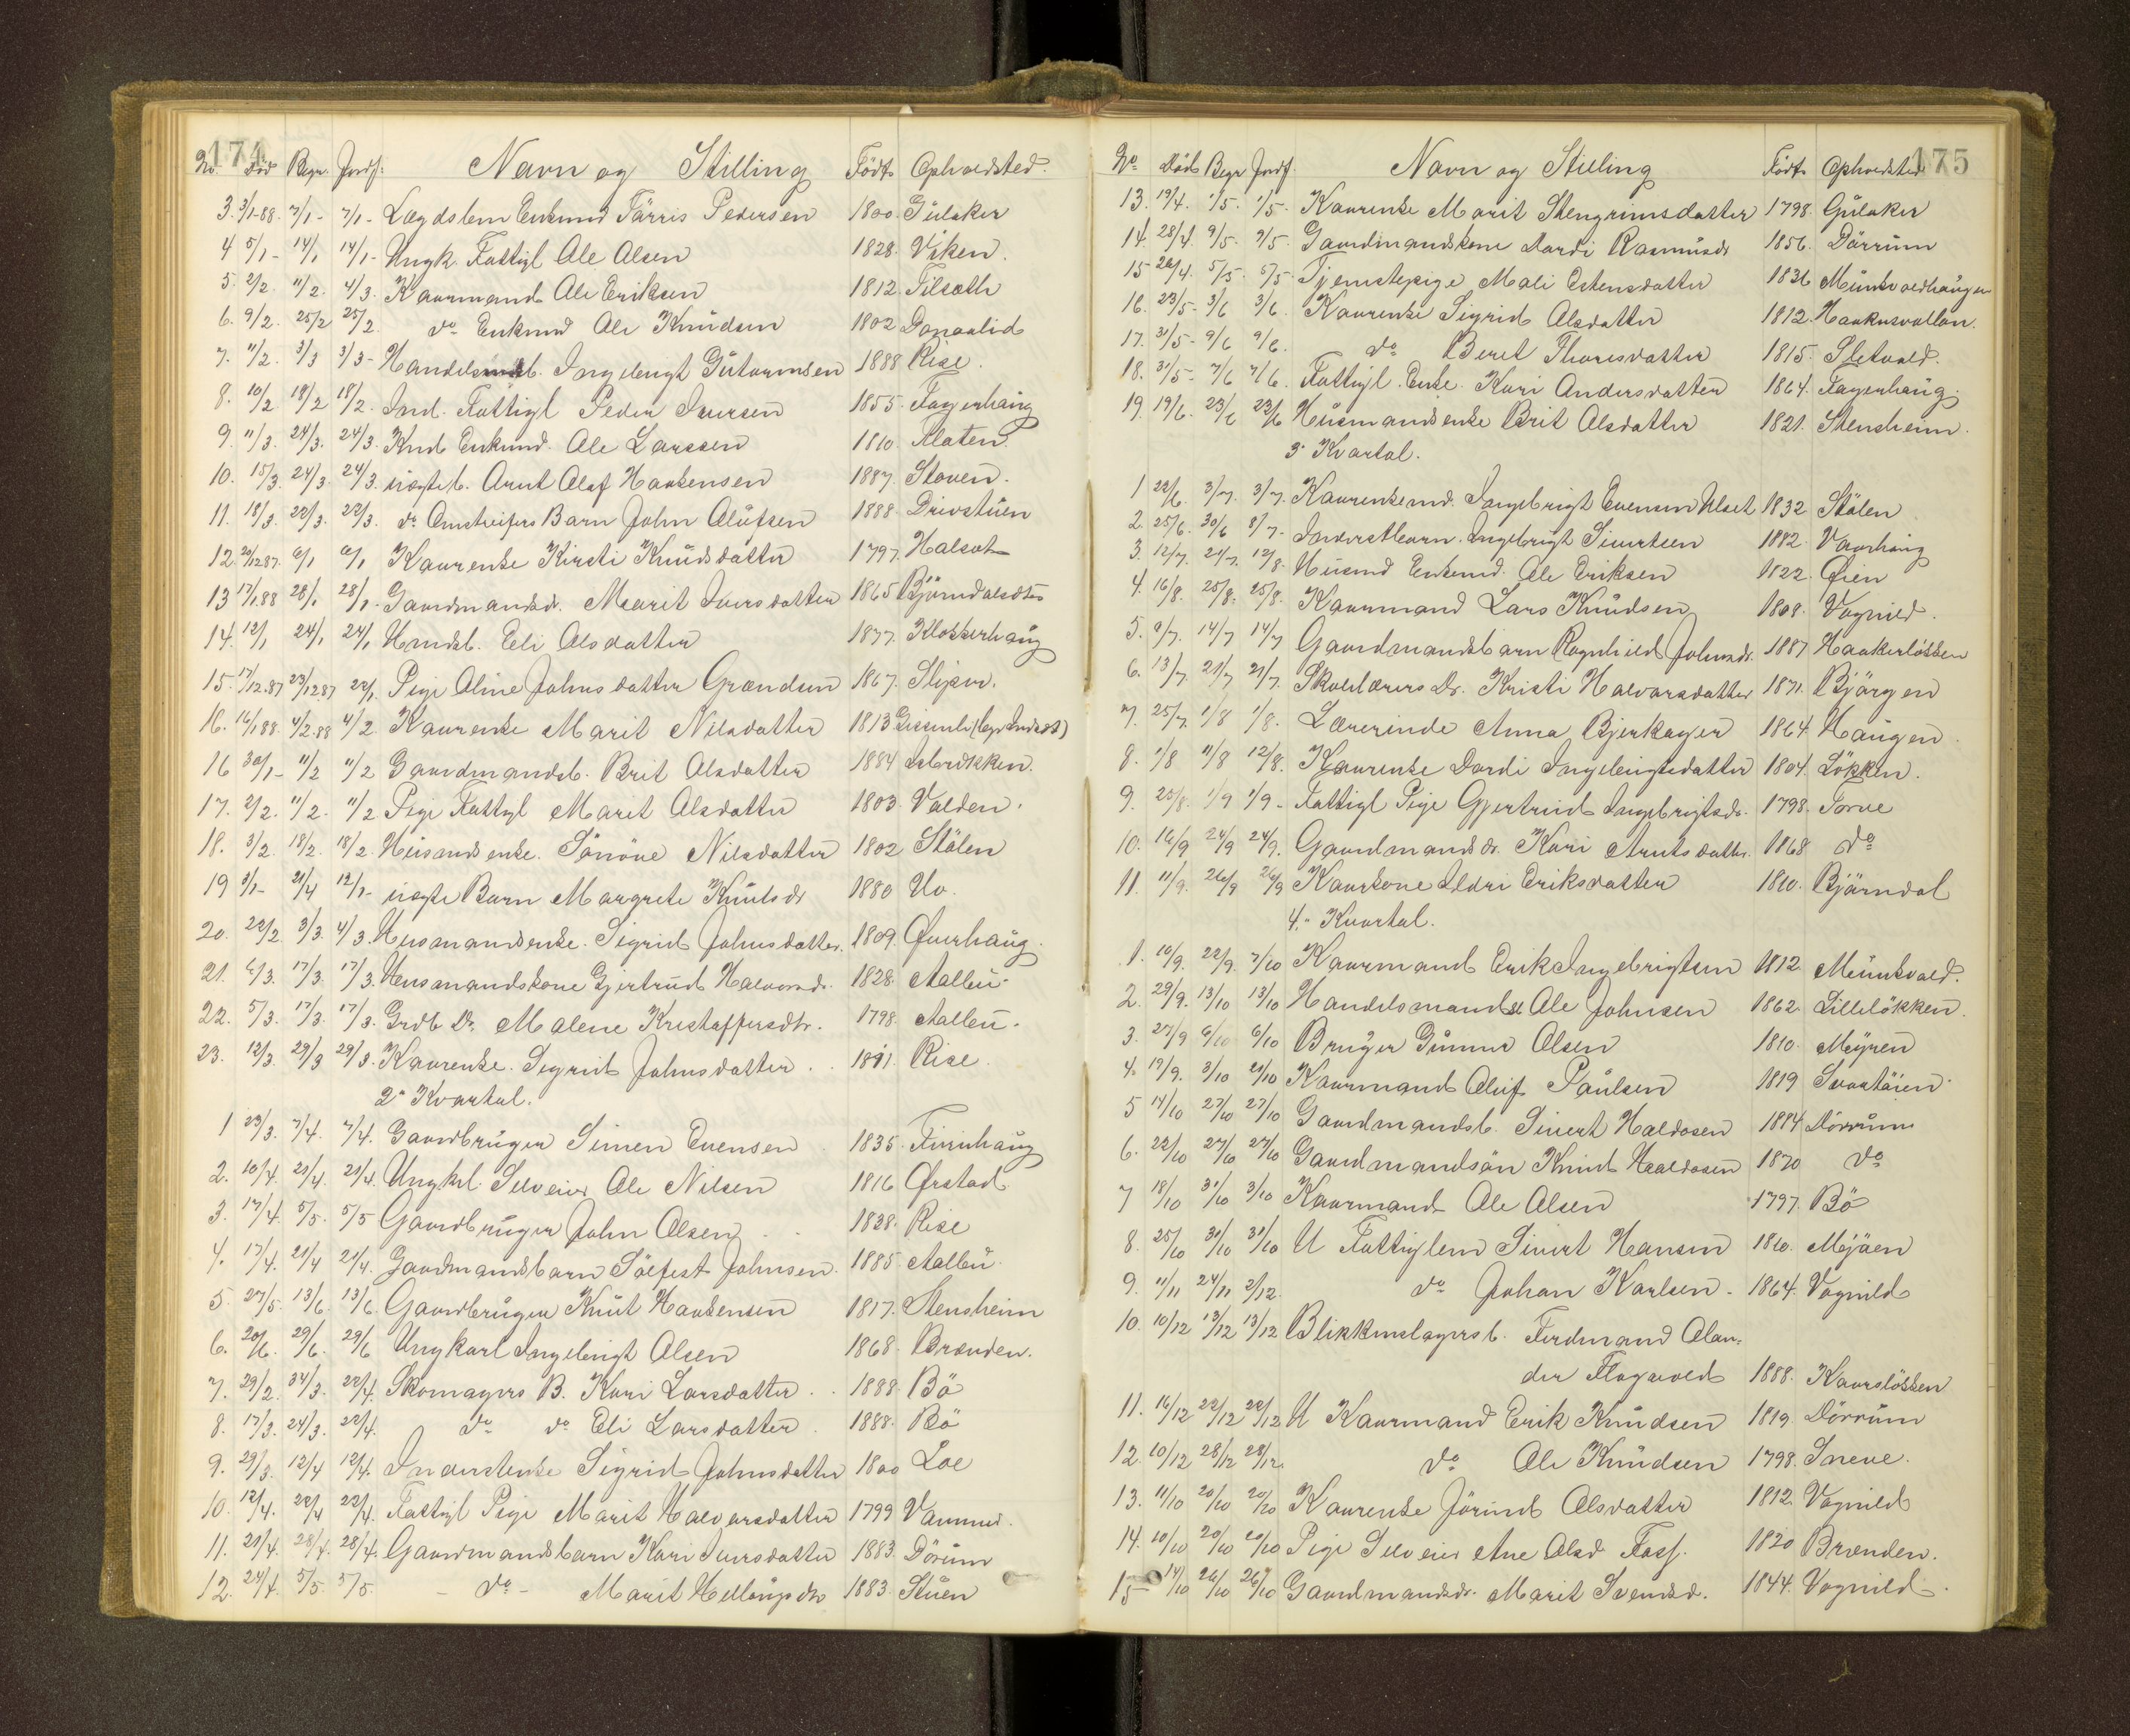 174
No. Död Begr. Jordf. Navn og Stilling Födt Opholdsted.
3. 3/1-88. 7/1- 7/1- Lægdslem Enkmd Tärris Pedersen 1800. Gulaker
4 5/1- 14/1 14/1- Ungk. Fattigl Ole Olsen 1828. Viken.
5. 2/2. 11/2. 4/3. Kaarmand Ole Eriksen 1812. Tilseth
6. 9/2. 25/2 25/2. do Enkmd Ole Knudsen 1802
7. 11/2. 3/3 3/3- Ingebrigt Gutormsen 1888 Rise.
8. 10/2 18/2 18/2. Ind. Fattigl Peder Iversen 1855. Fagerhaug
9. 11/3. 24/3. 24/3. Enkmd. Ole Larssen 1810. Flaten.
10. 15/3. 24/3. 24/3. uægteb. Arnt Olaf Haakensen 1887. Stoven.
11. 18/3. 22/3. 22/3. do Omstreifers Barn John Olufsen 1888. Drivstuen
12. 20/12 87. 6/1 6/1 Kaarenke Kirsti Knudsdatter 1797. Halset
13 17/1 88 28/1 28/1. Gaardmandsdr. Marit Iversdatter 1865
14. 12/1 24/1 24/1 Hmdsb. Eli Olsdatter 1877. Klokkerhaug
15. 17/12.87 23/12 87 22/1. Pige Oline Johnsdatter Grændsen 1867. Sliper.
16. 16/1 88. 4/2.88 4/2 Kaarenke Marit Nilsdatter 1813
16 30/1- 11/2 11/2 Gaardmandsb. Brit Olsdatter 1884
17. 2/2. 11/2. 11/2 Pige Fattigl Marit Olsdatter 1803. Valden.
18. 3/2. 18/2. 18/2. Husmdsenke. Sönöve Nilsdatter 1802 Stölen
19 3/1- 21/4 12/1- uægte Barn Margrete Knutsdr 1880 Uv.
20. 22/2 3/3. 4/3. Husmandsenke. Sigrid Johnsdatter. 1809. Overhaug.
21. 6/3. 17/3. 17/3. Husmandskone Gjertrud Halvorsdr. 1828. Aalbu.
22. 5/3. 17/3. 17/3. Grdb. Dr. Malene Kristoffersdtr. 1798. Aalbu.
23. 12/3. 29/3 29/3. Kaarenke. Sigrid Johnsdatter. . Rise.
2. Kvartal.
1 23/3. 7/4. 7/4. Gaardbruger Simen Evensen 1835. Furuhaug
2. 10/4. 21/4. 21/4. Ungkrl. Selveier Ole Nilsen 1816 Örstad.
3. 17/4. 5/5. 5/5 Gaardbruger John Olsen . . 1828. Rise
4. 17/4. 21/4 21/4. Gaardmandsbarn Sölfest Johnsen. 1885. Aalbu.
5. 27/5. 13/6. 13/6. Gaardbruger Knut Haakensen 1817. Stensheim
6. 20/6. 29/6. 29/6 Ungkarl Ingebrigt Olsen 1868. Brænden.
7. 29/2. 24/3. 22/4. Skomagers B. Kari Larsdatter . . 1888. Bö
8. 17/3. 24/3. 22/4. do do Eli Larsdatter 1888. Bö
9. 29/3. 12/4 12/4. Inderstenke Sigrid Johnsdatter 1800 Loe
10. 12/4. 22/4 22/4. Fattigl Pige Marit Halvorsdatter 1799
11. 21/4. 28/4. 28/4. Gaardmandsbarn Kari Iversdatter 1883. Dörum
12. 24/4. 5/5. 5/5. - do - Marit 1883. Stuen
175
No Död Begr Jordf. Navn og Stilling Födt Opholdsted
13. 19/4. 1/5. 1/5. Kaarenke Marit Stengrimsdatter 1798. Gulaker
14. 28/4. 9/5. 9/5. Gaardmandskone Dordi Rasmusdr 1856. Dörrum
15 26/4. 5/5. 5/5. Tjenestepige Mali Estensdatter 1836 Munkvoldhaugen
16. 23/5- 3/6 3/6. Kaarenke Sigrid Olsdatter 1812. Haakusvollan.
17. 31/5- 9/6 9/6. do Beret Thoresdatter 1815. Sletvold.
18. 31/5- 7/6 7/6. Fattigl. Enke. Kari Andersdatter 1864. Fagerhaug.
19. 19/6. 23/6 23/6 Husmandsenke Brit Olsdatter 1821. Stensheim.
3. Kvartal.
1 22/6. 3/7. 3/7. Kaarenkemd. Ingebrigt Evensen Ulset 1832. Stölen
2. 25/6. 30/6 8/7- Inderstbarn. Ingebrigt Sivertsen 1882. Vaarhaug
3. 12/7. 24/7. 12/8. Husmd Enkemd. Ole Eriksen 1822. Öien
4. 16/8. 25/8. 25/8. Kaarmand Lars Knudsen 1808. Vognild.
5. 9/7. 14/7 14/7 Gaardmandsbarn Ragnhild Johnsdr. 1887 Haakerlökken
6. 13/7. 21/7 21/7. Skolelærers Dr. Kristi Halvorsdatter 1871. Björgen
7. 25/7. 1/8 1/8. Lærerinde Anna Bjerkager 1864 Haugen.
8. 1/8 11/8 12/8. Kaarenke Dordi Ingebrigtsdatter 1804. Lökken.
9. 25/8. 1/9 1/9- Fattigl Pige Gjertrud Ingebrigtsdr. 1798. Torve
10. 16/9 24/9 24/9. Gaardmandsdr. Kari Arntsdatter. 1868 do
11. 11/9. 26/9 26/9 Kaarkone Ildri Eriksdatter 1810. Björndal
4. Kvartal.
1. 10/9. 22/9. 7/10 Kaarmand Erik Ingebrigtsen 1812. Munkvold.
2. 29/9. 13/10 13/10 Ole Johnsen 1862. Lillelökken.
3. 27/9 6/10 6/10 Bruger Gunnar Olsen 1810. Möyen
4. 19/9. 3/10 21/10 Kaarmand Oluf Paulsen 1819
5 14/10 27/10 27/10 Gaardmandsb. Sivert Haldosen 1884 Dörrum
6. 22/10 27/10 27/10 Gaardmandsön Knut Haldosen 1870 do
7 18/10 31/10 3/10 Kaarmand Ole Olsen 1797. Bö
8. 25/10 31/10 31/10 U Fattiglem Sivert Hansen 1810. Möjäen
9. 11/11 24/11 2/12. do Johan Karlsen. 1864. Vognild
10. 10/12 13/12 13/12 Blikkenslagersb. Ferdinand Olan-
der Flogvold 1888. Kaarslökken
11. 16/12 22/12 22/12 U Kaarmand Erik Knudsen 1819. Dörrum
12. 10/12 28/12 28/12. do Ole Knudsen 1798. Sneve.
13. 11/10 20/10 20/10 Kaarenke Jörund Olsdatter 1812. Vognild
14. 10/10 20/10 20/10 Pige Selveier Ane Olsd. 1820 Brænden.
15 14/10 26/10 26/10 Gaardmandsdr. Marit Svendsd. 1844. Vognild.